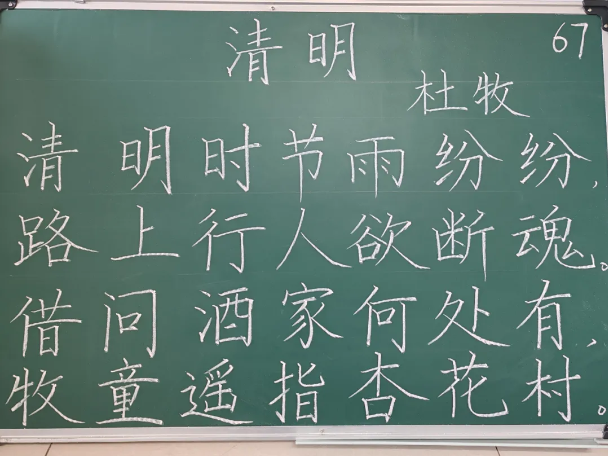 清明
67
杜牧
清明时节雨纷纷,
路上行人欲断魂。
借问酒家何处有,
牧童遥指杏花村。